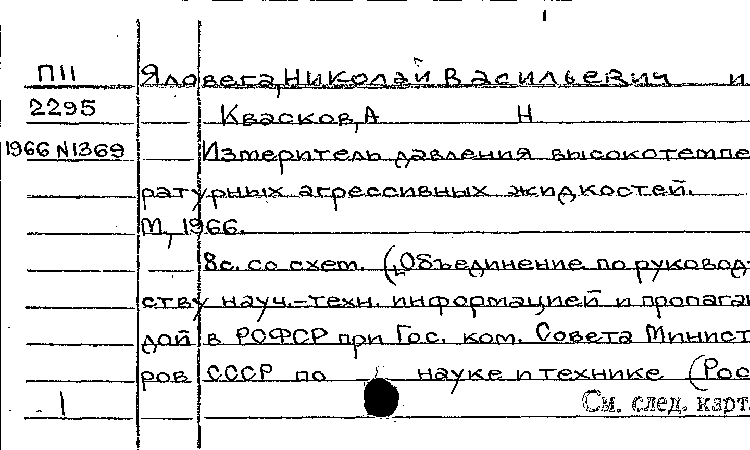 П11 Яловега, Николай Васильевич и
2295 Квасков, А Н
1966 N1369 Измеритель давления высокотемпе
ратурных агрессивных жидкостей.
М, 1966.
8с. со схем. (Объединение по руковод-
ству науч.-техн. информацией и пропаган
дой в РСФСР при Гос. ком. Совета Минист
ров СССР по науке и технике (Рос
1 См. след. карт.